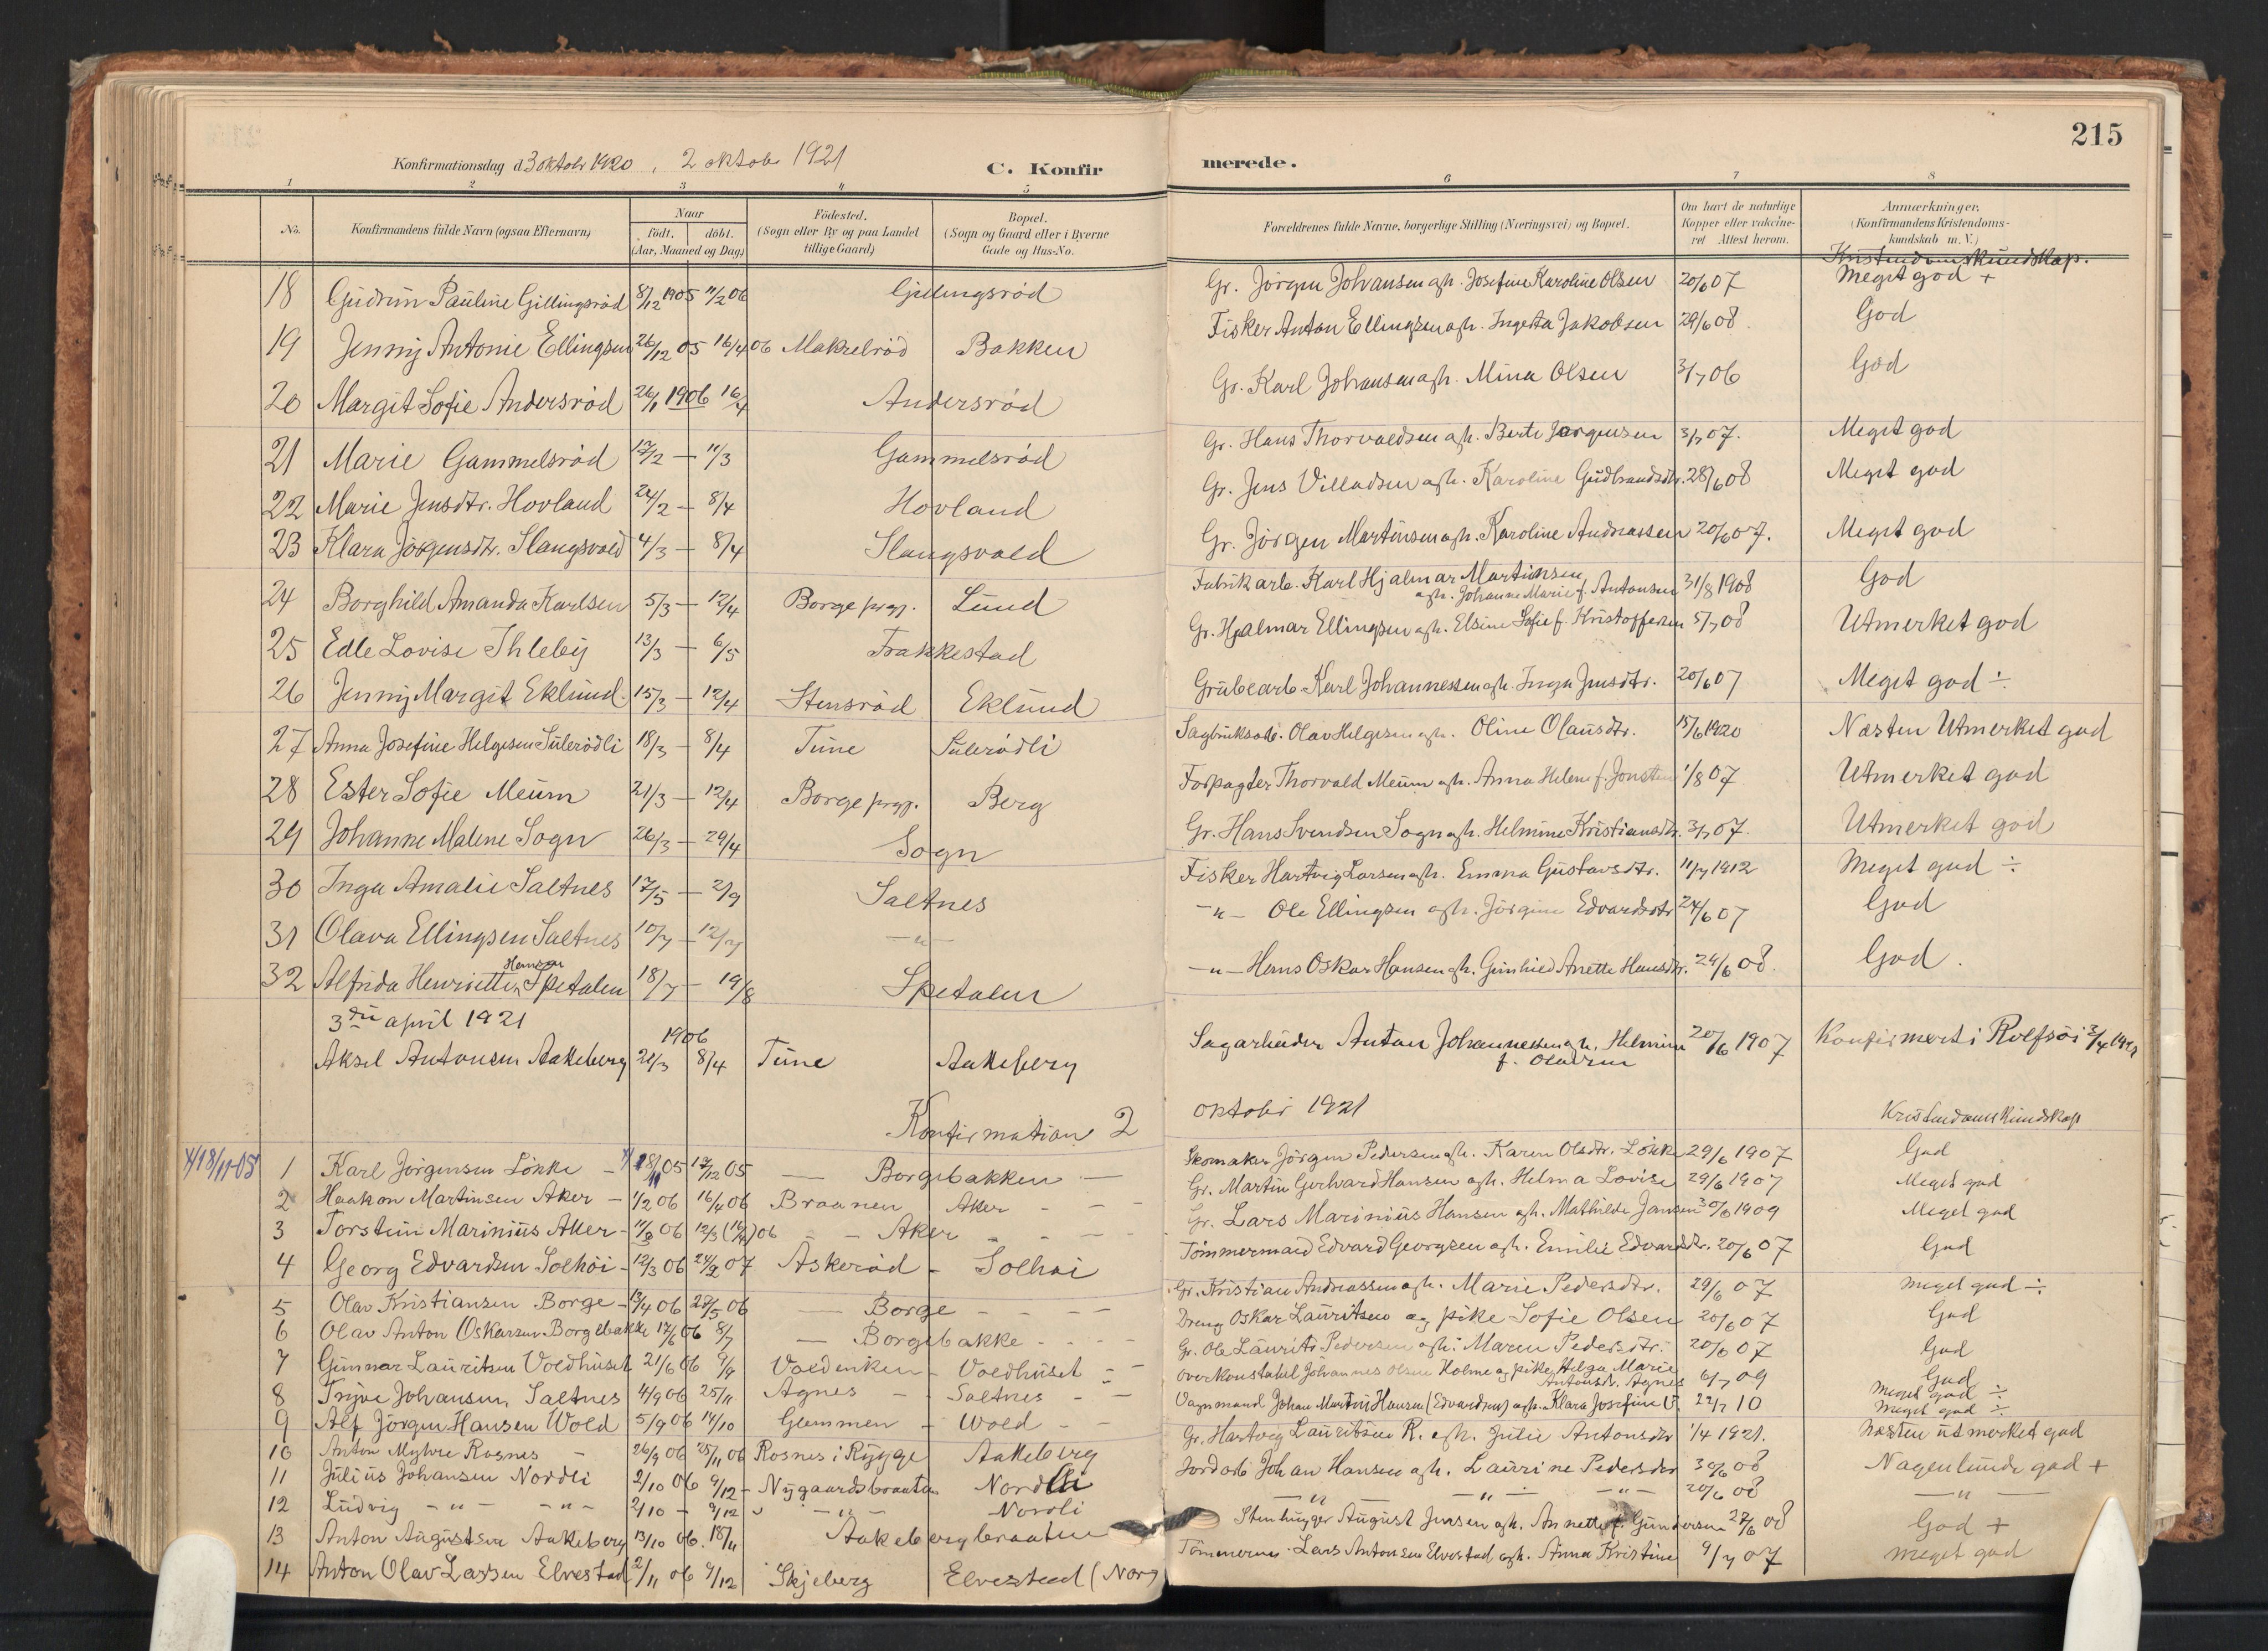 215
Konfirmationsdag d 3 oktobr 1920, 2 oktobr 1921 C. Konfirmerede.
1 2 3 4 5 6 7 8
No. Konfirmandens fulde Navn (ogsaa Efternavn) Naar födt. döbt. (Aar, Maaned og Dag) Födested. (Sogn eller By og paa Landet tillige Gaard) Bopæl. (Sogn og Gaard eller i Byerne Gade og Hus-No. Forældrenes fulde Navne, borgerlige Stilling (Næringsvei) og Bopæl. Om havt de naturlige Kopper eller vakcineret Attest herom. Anmærkninger. (Konfirmandens Kristendomskundskab m. V.)
Kristendomskundskap.
18 Gudrun Pauline Gillingsröd 8/12 1905 11/2 06 Gillingsröd Gr. Jörgen Johansen ogh. Josefine Karoline Olsen 20/6 07 Meget god +
19 Jenny Antonie Ellingsen 26/12 05 16/4 06 Makrelröd Bakken Fisker Anton Ellingsen ogh. Ingeta Jakobsen 29/6 08 God
20 Margit Sofie Andersröd 26/1 1906 16/4 Andersröd Gr. Karl Johansen ogh. Mina Olsen 3/7 06 God
21 Marie Gammelsröd 17/2 — 11/3 Gammelsröd Gr. Hans Thorvaldsen ogh. Berte Jörgensen 3/7 07. Meget god
22 Marie Jensdtr. Hovland 24/2 — 8/4 Hovland Gr. Jens Villadsen ogh. Karoline Gudbrandsdtr. 28/6 08 Meget god
23 Klara Jörgensdtr. Slangsvold 4/3 — 8/4 Slangsvold Gr. Jörgen Martinsen ogh. Karoline Andreassen 20/6 07. Meget god
24 Borghild Amanda Karlsen 5/3 — 12/4 Borge prgj. Lund Fabrikarb. Karl Hjalmar Martinsen ogh. Johanne Marie f. Antonsen 31/8 1908 God
25 Edle Lovise Ihleby 13/3 — 6/5 Trakkestad Gr. Hjalmar Ellingsen ogh. Elsine Sofie f. Kristoffersen 5/7 08 Utmerket god
26 Jenny Margit Eklund 15/3 — 12/4 Stensröd Eklund Grubearb. Karl Johannessen ogh. Inga Jensdtr. 20/6 07 Meget god ÷
27 Anna Josefine Helgesen Sulerödli 18/3 — 8/4 Tune Sulerödli Sagbruksarb. Olav Helgesen ogh. Oline Olausdtr. 15/6 1920 Næsten Utmerket god
28 Ester Sofie Meum 21/3 — 12/4 Borge prgj. Berg Forpagter Thorvald Meum ogh. Anna Helene f. 1/8 07 Utmerket god
29 Johanne Malene Sogn 26/3 — 29/4 Sogn Gr. Hans Svendsen Sogn ogh. Helmine Kristiansdtr. 3/7 07. Utmerket god
30 Inga Amalie Saltnes 17/5 — 2/9 Saltnes Fisker Hartvig Larsen ogh. Emma Gustavsdtr. 11/7 1912 Meget god ÷
31 Olava Ellingsen Saltnes 10/7 — 12/7 —"— —"— Ole Ellingsen ogh. Jörgine Edvardsdtr 24/6 07 God
32 Alfrida Henriette Hansen Spetalen 18/7 — 19/8 Spetalen —"— Hans Oskar Hansen ogh. Gunhild Anette Hansdtr. 24/6 08. God.
3die april 1921
Aksel Antonsen Aakeberg 1906 20/3 8/4 Tune Aakeberg Sagarbeider Anton Johannessen og h. Helmine f. Olavsen 20/6 1907 Konfirmert i Rolfsöi 3/4 1921
Konfirmation 2 oktobr 1921 Kristendomskundskap
4/18/11-05 1 Karl Jörgensen Lökke — 18/11 05 17/12 05 — Borgebakken — Skomaker Jörgen Pedersen ogh. Karen Olsdtr. Lökke 29/6 1907 God
2 Haakon Martinsen Aker — 1/2 06 16/4 06 Braanen Aker Gr. Martin Gerhard Hansen ogh. Helma Lovise 29/6 1907 Meget god
3 Torstein Marinius Aker — 11/2 06 12/3 (16/4) 06 — Aker Gr. Lars Marinius Hansen ogh. Mathilde Jansen 30/6 1909 Meget god
4 Georg Edvardsen Solhöi — 12/3 06 24/2 07 Askeröd — Solhöi Tömmermand Edvard Georgsen ogh. Emilie Edvardsdtr. 20/6 07 God
5 Olav Kristiansen Borge — 13/4 06 20/5 06 — Borge Gr. Kristian Andreassen ogh. Marie Pedersdtr. 29/6 07 Meget god ÷
6 Olav Anton Oskarsen Borgebakke 17/6 06 8/7 — Borgebakke Dreng Oskar Lauritsen og pike Sofie Olsen 20/6 07 God
7 Gunnar Lauritsen Voldhuset 21/6 06 9/9 Voldenken Voldhuset Gr. Ole Laurits Pedersen ogh. Maren Pedersdtr. 20/6 07 God
8 Trygve Johansen Saltnes 4/9 06 25/11 Agnes — Saltnes Overkonstabel Johannes Olsen Holme og pike Helga Marie Antonsdr. Agnes 6/7 09 God Meget god ÷
9 Alf Jörgen Hansen Wold 5/9 06 14/10 Glemmen — Wold Vognmand Johan Martin Hansen (Edvardsen) ogh. Klara Josefine 22/7 10 Meget god ÷
10 Anton Myhre Rosnes — 26/9 06 25/11 06 Rosnes i Rygge Aakeberg Gr. Hartvig Lauritsen R. ogh. Julie Antonsdtr 1/4 1921. Næsten utmerket god
11 Julius Johansen Nordli 2/10 06 9/12 — Nygaardsbraaten Nordli Jordarb Johan Hansen ogh. Laurine Pedersdtr 30/6 08 Nogenlunde god +
12 Ludvig —"— —"— 2/10 — 9/12 —"— Nordli —"— —"— —"— 20/6 08 —"—
13 Anton Augustsen Aakeberg 13/10 06. 18/11 Aakebergbraaten Stenhugger August Jensen ogh. Annette f. Gundersen 27/6 08 God +
14 Anton Olav Larsen Elvestad 2/11 06 9/12 Skjeberg Elvestad (Norg Tömmerm. Lars Antonsen Elvestad ogh. Anna Kristine 9/7 07 Meget god